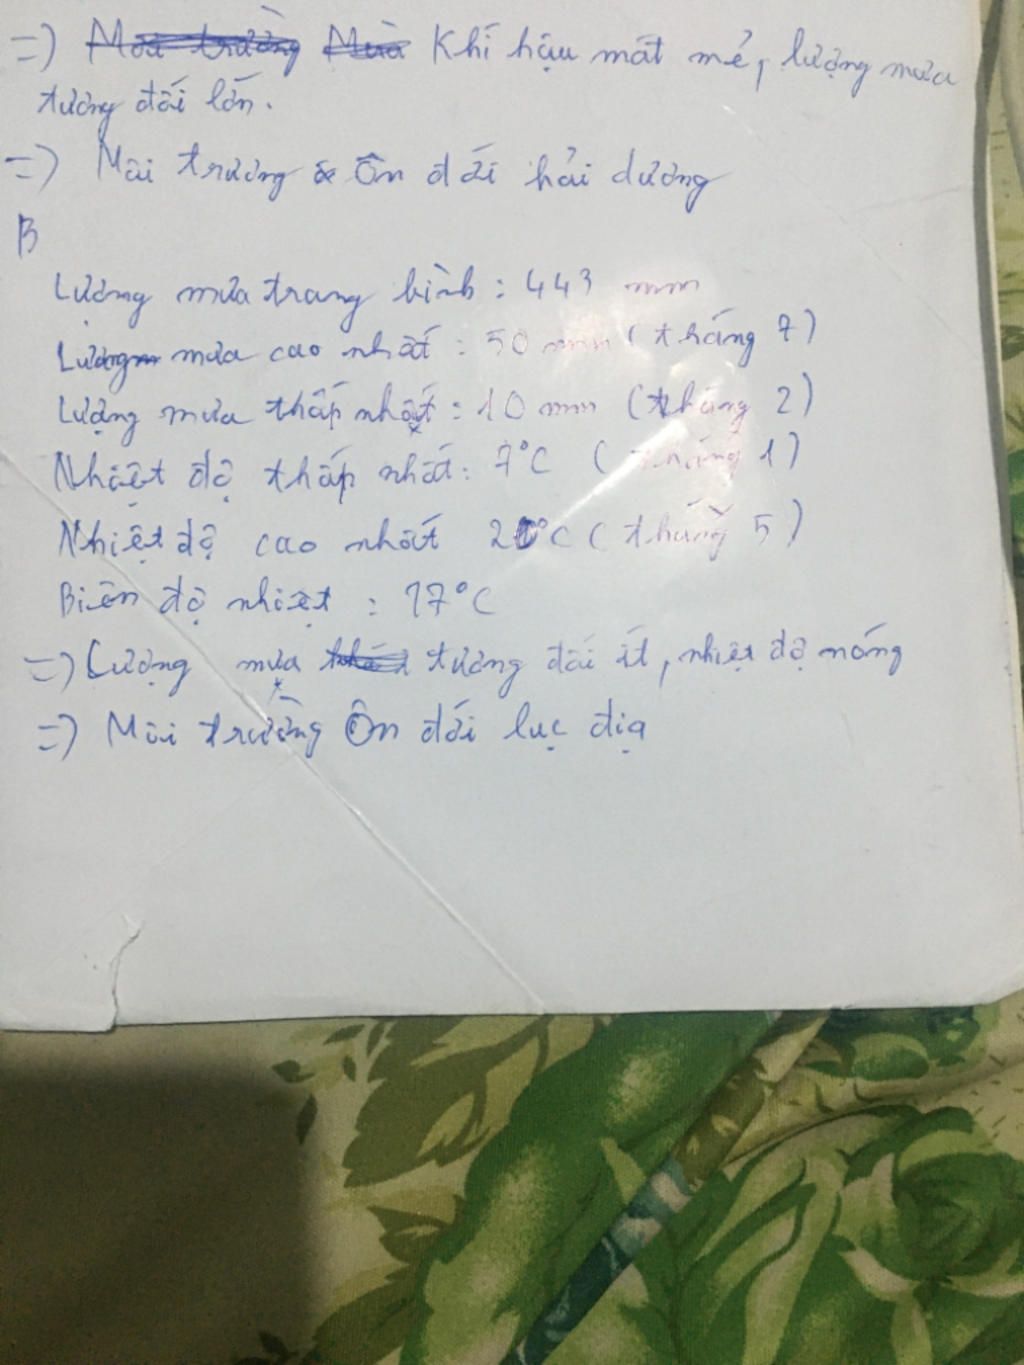 =) Khí hậu mát mẻ, lượng mưa
tương đối lớn.
=) Môi trường Ôn đới hải dương
B
Lượng mưa trang bình : 443 mm
Lượng mưa cao nhất : 50 mm (tháng 7)
Lượng mưa thấp nhất : 10 mm (tháng 2)
Nhiệt độ thấp nhất: 7°C (tháng 1)
Nhiệt độ cao nhất °C (tháng 5)
Biên độ nhiệt : 17°C
=) Lượng mưa tương đối ít, nhiệt độ nóng
=) Môi trường Ôn đới lục địa